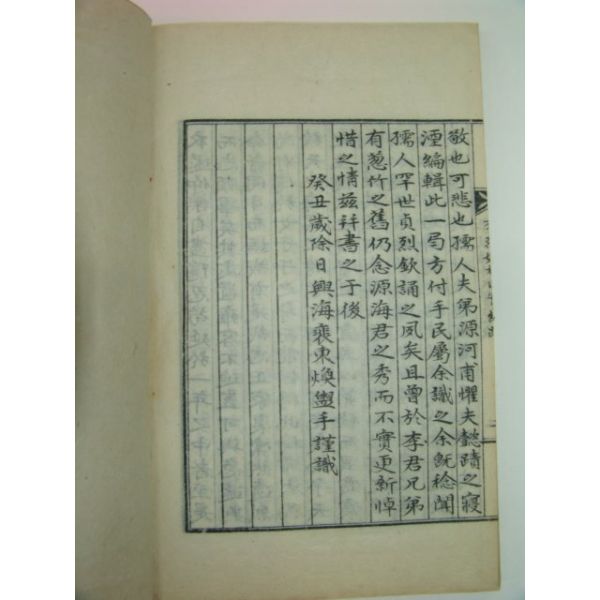 敬也可悲也孺人夫弟源河甫懼夫懿蹟之寢
湮編輯此一局方付手民屬余識之余旣稔聞
孺人罕世貞烈欽誦之夙矣且曾於李君兄弟
有蔥竹之舊仍念源海君之秀而不實更新悼
惜之情玆幷書之于後
癸丑歲除日興海裵東煥盥手謹識